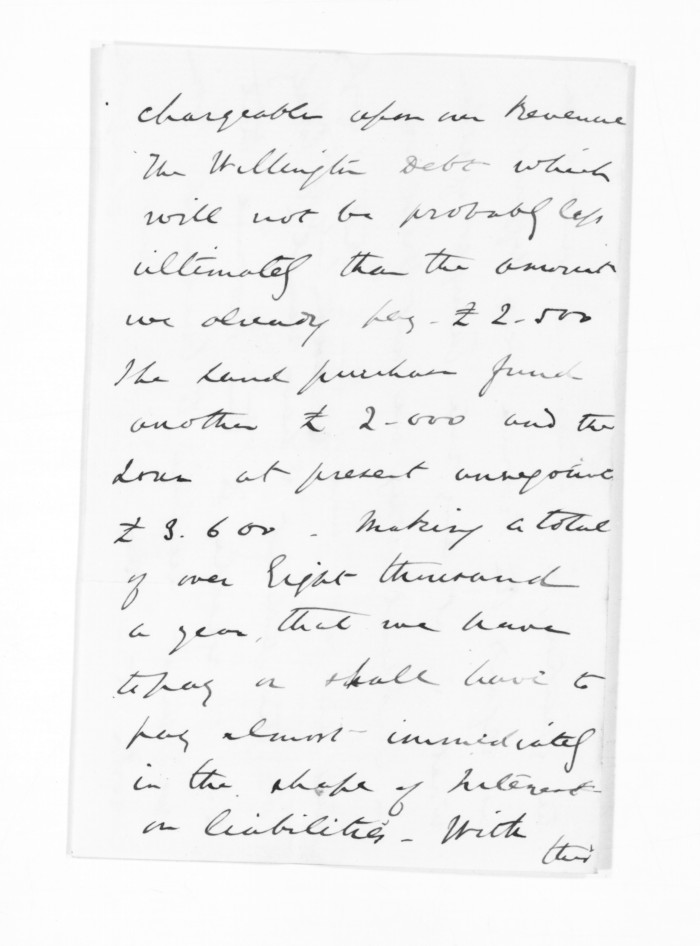 chargeable upon our Revenue
The Wellington Debt which
will not be probably less
ultimately than the amount
we already pay - £2-500
The Land purchase fund
another £2-000 and the
Loan at present
£3.600 - Making a total
of over Eight thousand
a year, that we have
to pay or shall have to
pay almost immediately
in the shape of Interest
on liabilities - With
this